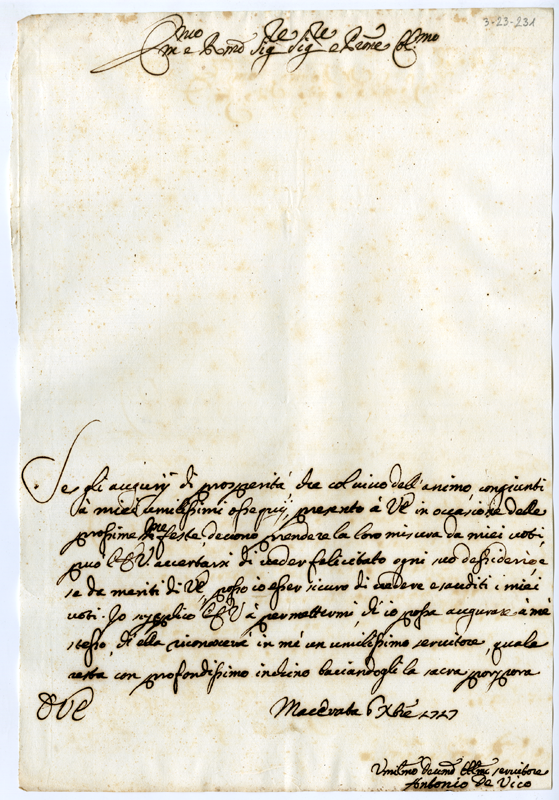 3-23-231
Em.mo e R.mo Sig.re Sig.re e Prone Col.mo
Se gli augurij di prosperità che col vivo dell'animo, congiunti
à miei umilissimi ossequij, presento à VE in occasione delle
prossime S.te feste devono prendere la loro misura da miei voti,
può l'EV accertarsi di veder felicitato ogni suo desiderio, e
se da meriti di VE, posso io esser sicuro di vedere esauditi i miei
voti. Io supplico l'EV à permettermi, ch'io possa augurare à mè
stesso, ch'ella riconoscerà in mè un umilissimo servitore, quale
resta con profondissimo inchino baciandogli la sacra porpora
DVE
Macerata 6 Xbre 1717
Umilmo devmo servitore
Antonio de Vico